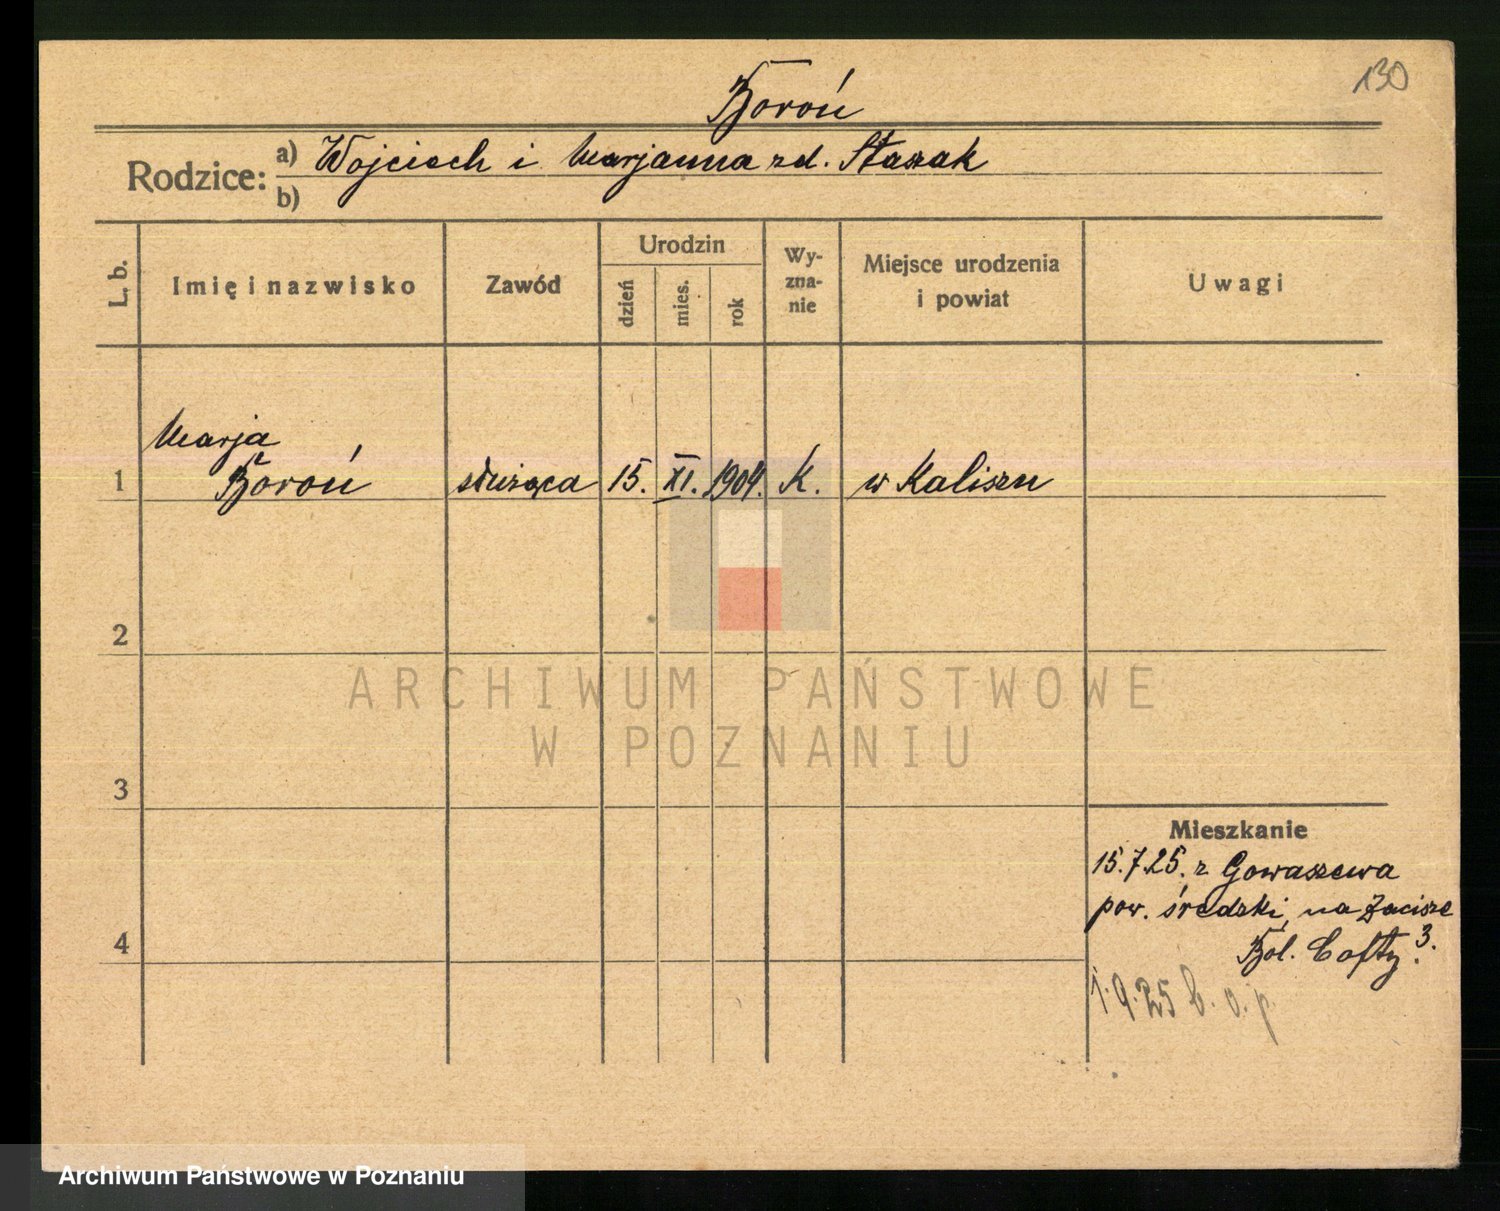 130
Boroń
Rodzice: a) Wojciech i Marjanna zd. Staszak
b)
L. b.
Imię i nazwisko
Zawód
Urodzin
dzień
mies.
rok
Wy-
zna-
nie
Miejsce urodzenia
i powiat
Uwagi
Marja
1 Boroń służąca 15. XI. 1904. K. w Kaliszu
2
ARCHIWUM PAŃSTWOWE
W POZNANIU
3
Mieszkanie
15.7.25. z Gowaszewa
pow. średzki, na Zacisze
4
Bol. 3.
1.9.25 b. o. p.
Archiwum Państwowe w Poznaniu